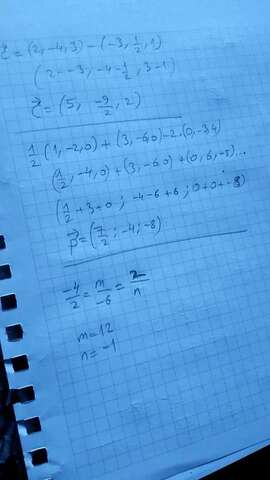 c⃗ = (2, -4, 3) - (-3, 1/2, 1)
(2 - -3, -4 - 1/2, 3-1)
c⃗ = (5, -9/2, 2)
1/2 (1, -2, 0) + (3, -6, 0) - 2·(0, -3, 4)
(1/2, -4, 0) + (3, -6, 0) + (0, 6, -8)...
(1/2 + 3 + 0 ; -4 -6 +6 ; 0+0+ -8)
p⃗ = (7/2 ; -4 ; -8)
-4/2 = m/-6 = 2/n
m = 12
n = -1